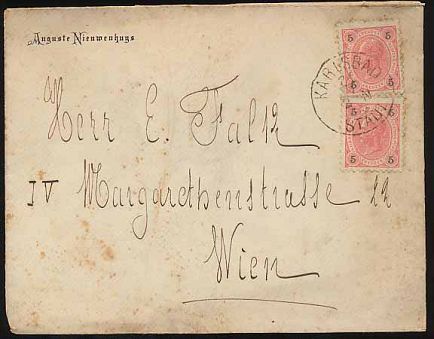 Auguste Nieuwenhuys
5 5
5 5
KARLSBAD
STADT
Herr E. Faltz
IV Margarethenstrasse 22
Wien